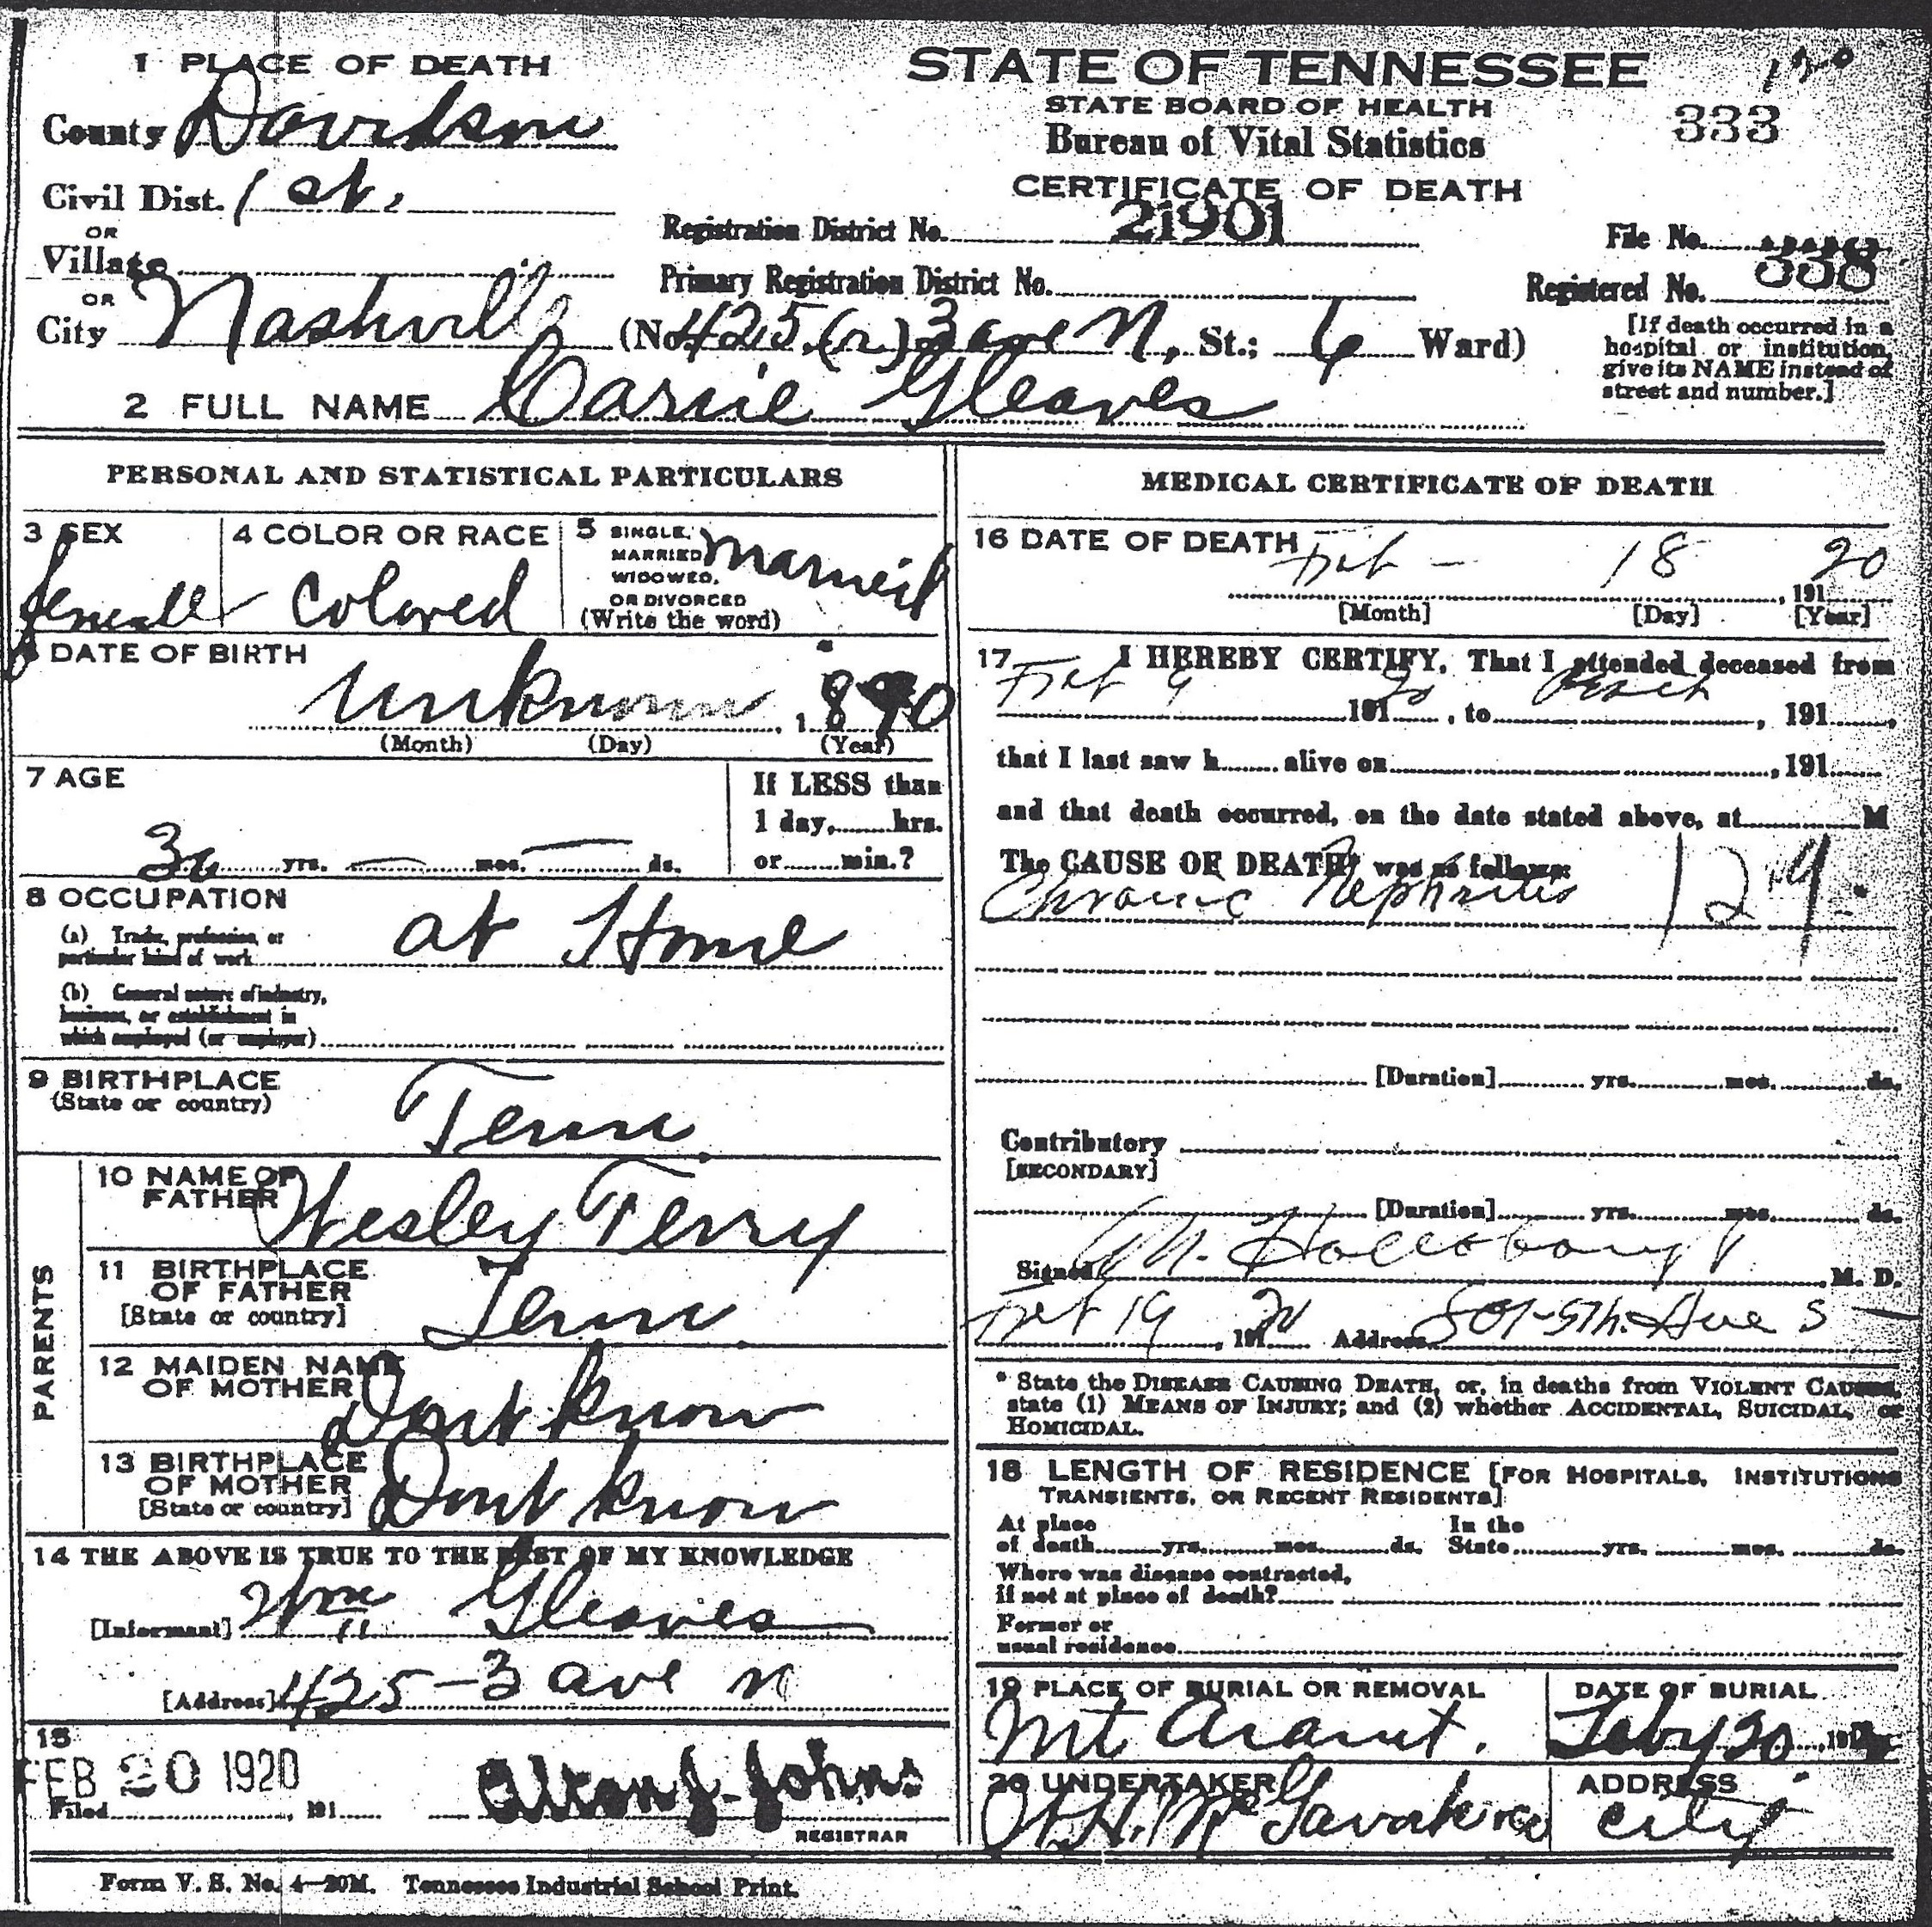 1 PLACE OF DEATH
County Davidson
Civil Dist. 1st.
OR
Village
OR
City Nashville (No. 425 (r) 3 ave N, St.; 6 Ward)
2 FULL NAME Carrie Gleaves
STATE OF TENNESSEE
STATE BOARD OF HEALTH
Bureau of Vital Statistics
CERTIFICATE OF DEATH
333
Registration District No. 21901
Primary Registration District No.
File No.
Registered No. 338
[If death occurred in a
hospital or institution,
give its NAME instead of
street and number.]
PERSONAL AND STATISTICAL PARTICULARS
3 SEX
female
4 COLOR OR RACE
Colored
5 SINGLE,
MARRIED
WIDOWED,
OR DIVORCED
(Write the word)
married
DATE OF BIRTH
unknown, 1890
(Month) (Day) (Year)
7 AGE
30 yrs. — mos. — ds.
If LESS than
1 day, hrs.
or min.?
8 OCCUPATION
(a) Trade, profession, or
particular kind of work
at Home
(b) General nature of industry,
business, or establishment in
which employed (or employer)
9 BIRTHPLACE
(State or country)
Tenn.
PARENTS
10 NAME OF
FATHER
Wesley Terry
11 BIRTHPLACE
OF FATHER
[State or country]
Tenn.
12 MAIDEN NAME
OF MOTHER
Dont know
13 BIRTHPLACE
OF MOTHER
[State or country]
Dont know
14 THE ABOVE IS TRUE TO THE BEST OF MY KNOWLEDGE
[Informant] Wm Gleaves
[Address] 425-3 ave N
15
FEB 20 1920
Filed, 191
Alton J. Johns
REGISTRAR
MEDICAL CERTIFICATE OF DEATH
16 DATE OF DEATH
Feb - 18 20
, 191
[Month] [Day] [Year]
17 I HEREBY CERTIFY, That I attended deceased from
Feb 9 191 20, to, 191,
that I last saw h alive on, 191
and that death occurred, on the date stated above, at M
The CAUSE OF DEATH* was as follows:
Chronic Nephritis 129
[Duration] yrs. mos. ds.
Contributory
[SECONDARY]
[Duration] yrs. mos. ds.
Signed, M. D.
Feb 19, 191 20 Address 801-5th. Ave S
* State the DISEASE CAUSING DEATH, or, in deaths from VIOLENT CAUSES,
state (1) MEANS OF INJURY; and (2) whether ACCIDENTAL, SUICIDAL, or
HOMICIDAL.
18 LENGTH OF RESIDENCE [FOR HOSPITALS, INSTITUTIONS
TRANSIENTS, OR RECENT RESIDENTS]
At place
of death yrs. mos. ds.
In the
State yrs. mos. ds.
Where was disease contracted,
if not at place of death?
Former or
usual residence
19 PLACE OF BURIAL OR REMOVAL
Mt Ararat.
DATE OF BURIAL
Feby 20, 191
20 UNDERTAKER
ADDRESS
City
Form V. S. No. 4—20M. Tennessee Industrial School Print.